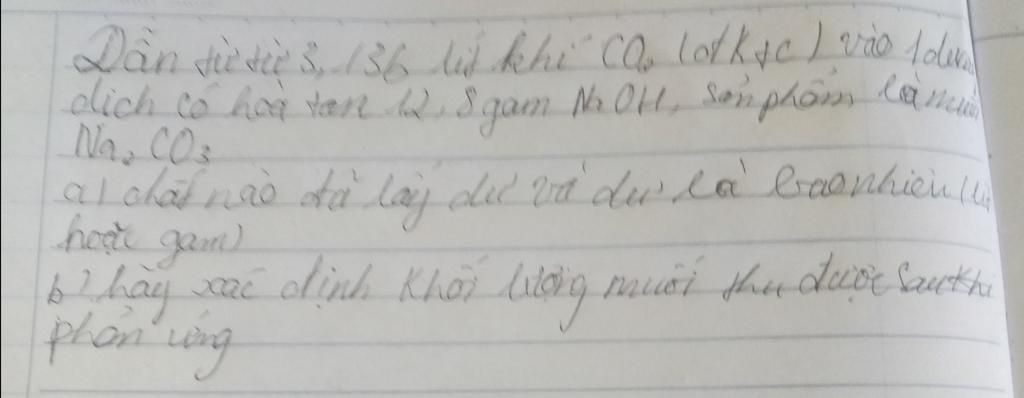 Dẫn từ từ 3,136 lít khí CO₂ (đktc) vào 1 dung
dịch có hoà tan 12,8 gam NaOH, sản phẩm là muối
Na₂CO₃
a) chất nào đã lấy dư và dư là bao nhiêu (lít
hoặc gam)
b) hãy xác định khối lượng muối thu được sau khi
phản ứng